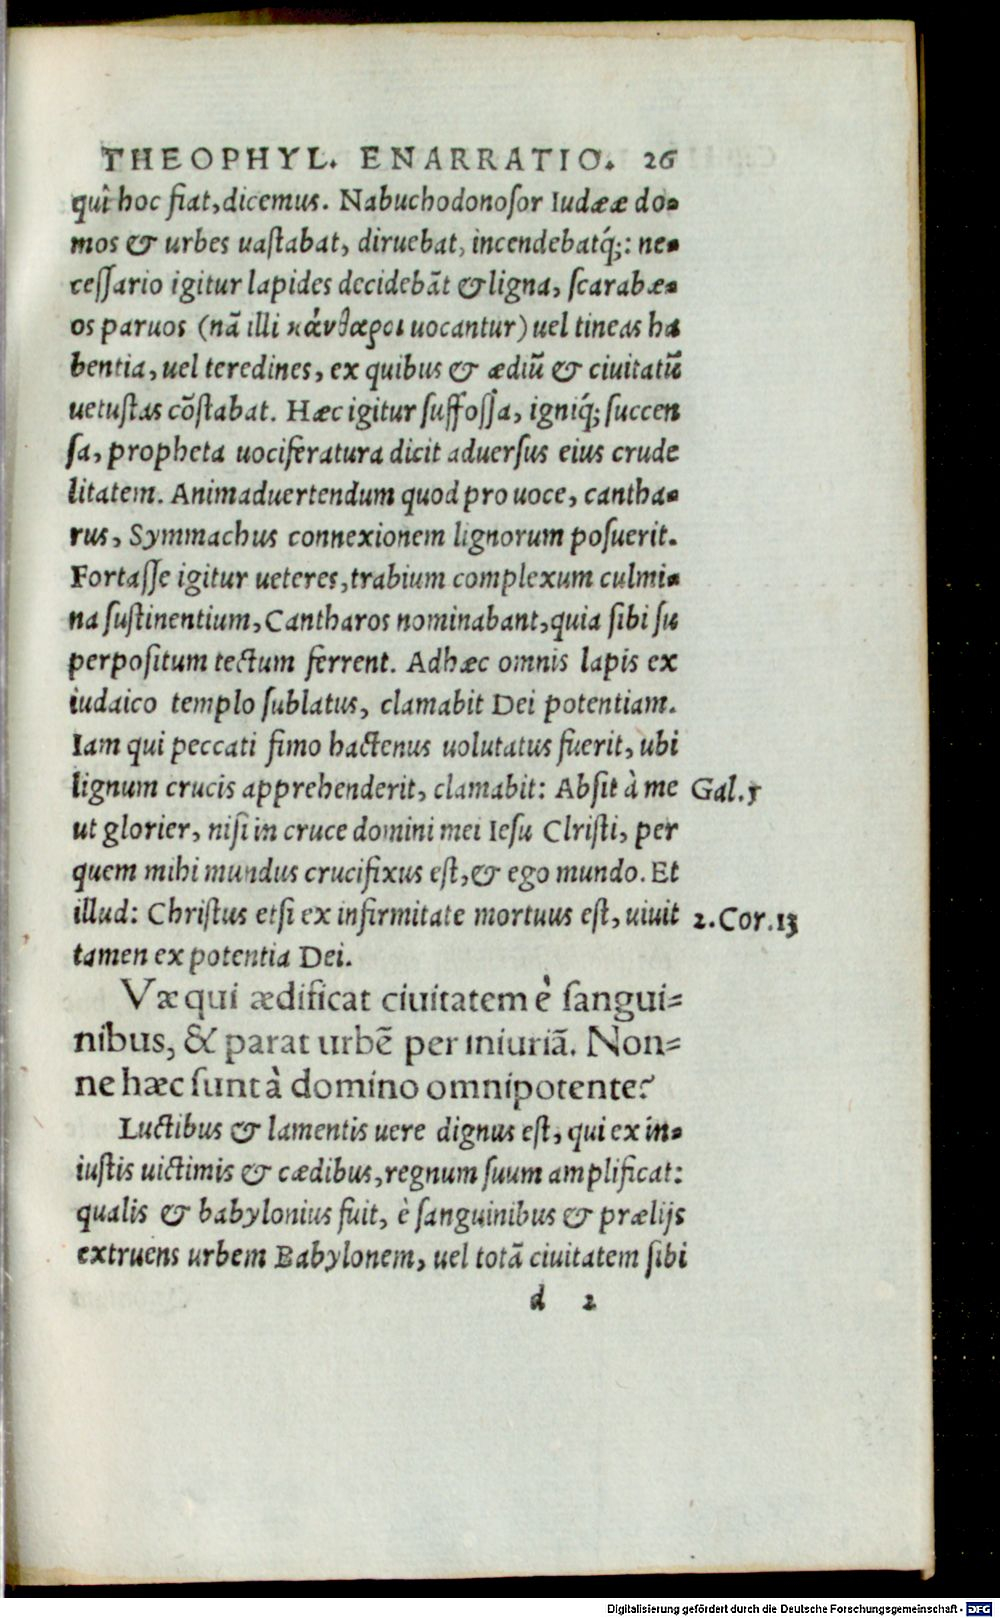 THEOPHYL. ENARRATIO. 26
quî hoc fiat, dicemus. Nabuchodonoſor Iudææ do-
mos & urbes uaſtabat, diruebat, incendebatq́;: ne-
ceſſario igitur lapides decidebãt & ligna, ſcarabæ-
os paruos (nã illi κάνθαροι uocantur) uel tineas ha
bentia, uel teredines, ex quibus & ædiũ & ciuitatũ
uetuſtas cõſtabat. Hæc igitur ſuffoſſa, igniq́; ſuccen
ſa, propheta uociferatura dicit aduerſus eius crude
litatem. Animaduertendum quod pro uoce, cantha-
rus, Symmachus connexionem lignorum poſuerit.
Fortaſſe igitur ueteres, trabium complexum culmi-
na ſuſtinentium, Cantharos nominabant, quia ſibi ſu
perpoſitum tectum ferrent. Adhæc omnis lapis ex
iudaico templo ſublatus, clamabit Dei potentiam.
Iam qui peccati fimo hactenus uolutatus fuerit, ubi
lignum crucis apprehenderit, clamabit: Abſit à me Gal. 5
ut glorier, niſi in cruce domini mei Ieſu Clriſti, per
quem mihi mundus crucifixus eſt, & ego mundo. Et
illud: Chriſtus etſi ex infirmitate mortuus eſt, uiuit 2. Cor. 13
tamen ex potentia Dei.
Væ qui ædificat ciuitatem è ſangui-
nibus, & parat urbẽ per iniuriã. Non-
ne hæc ſunt à domino omnipotente?
Luctibus & lamentis uere dignus eſt, qui ex in-
iuſtis uictimis & cædibus, regnum ſuum amplificat:
qualis & babylonius fuit, è ſanguinibus & prælijs
extruens urbem Babylonem, uel totã ciuitatem ſibi
d 2
Digitalisierung gefördert durch die Deutsche Forschungsgemeinschaft - DFG